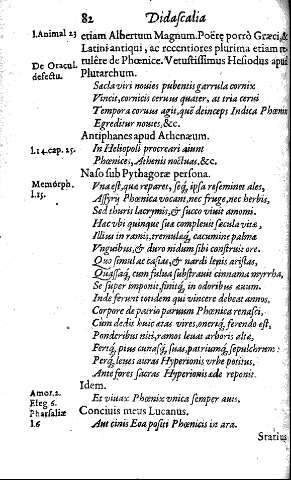 82 Didascalia
l.Animal 23 etiam Albertum Magnum. Poëtę porrò Græci, &
Latini antiqui, ac recentiores plurima etiam re
De Oracul. tulêre de Phœnice. Vetustissimus Hesiodus apud
defectu. Plutarchum.
Sæcla viri nouies pubentis garrula cornix
Vincit, cornicis ceruus quater, at tria cerui
Tempora coruus agit, quę deinceps Indica Phœnix
Egreditur noues, &c.
Antiphanes apud Athenæum.
l.14.cap.25. In Heliopoli procreari aiunt
Phœnices, Athenis noctuas, &c.
Naso sub Pythagoræ persona.
Memorph. Vna est, quæ reparet, seq́; ipsa reseminet ales,
l.15. Assyrij Phœnica vocant, nec fruge, nec herbis,
Sed thuris lacrymis, & succo viuit amomi.
Hæc vbi quinque suæ compleuit sæcula vitæ,
Illius in ramis, tremulaq́; cacumine palmæ
Vnguibus, & duro nidum sibi construit ore.
Quo simul ac casias, & nardi lenis aristas,
Quassaq́; cum fulua substrauit cinnama myrrha,
Se super imponit, finitq́; in odoribus æuum.
Inde ferunt totidem qui viuere debeat annos.
Corpore de patrio paruum Phœnica renasci,
Cum dedit huic ætas vires, oneriq́; ferendo est,
Ponderibus nidi, ramos leuat arboris altæ,
Fertq́; pius cunasq́; suas, patriumq́; sepulchrum:
Perq́; leues auras Hyperionis vrbe potitus,
Ante fores sacras Hyperionis æde reponit.
Amor.2. Idem.
Eleg 6. Et viuax Phœnix vnica semper auis.
Pharsaliæ Conciuis meus Lucanus.
l.6 Aut cinis Eoa positi Phœnicis in ara.
Statius